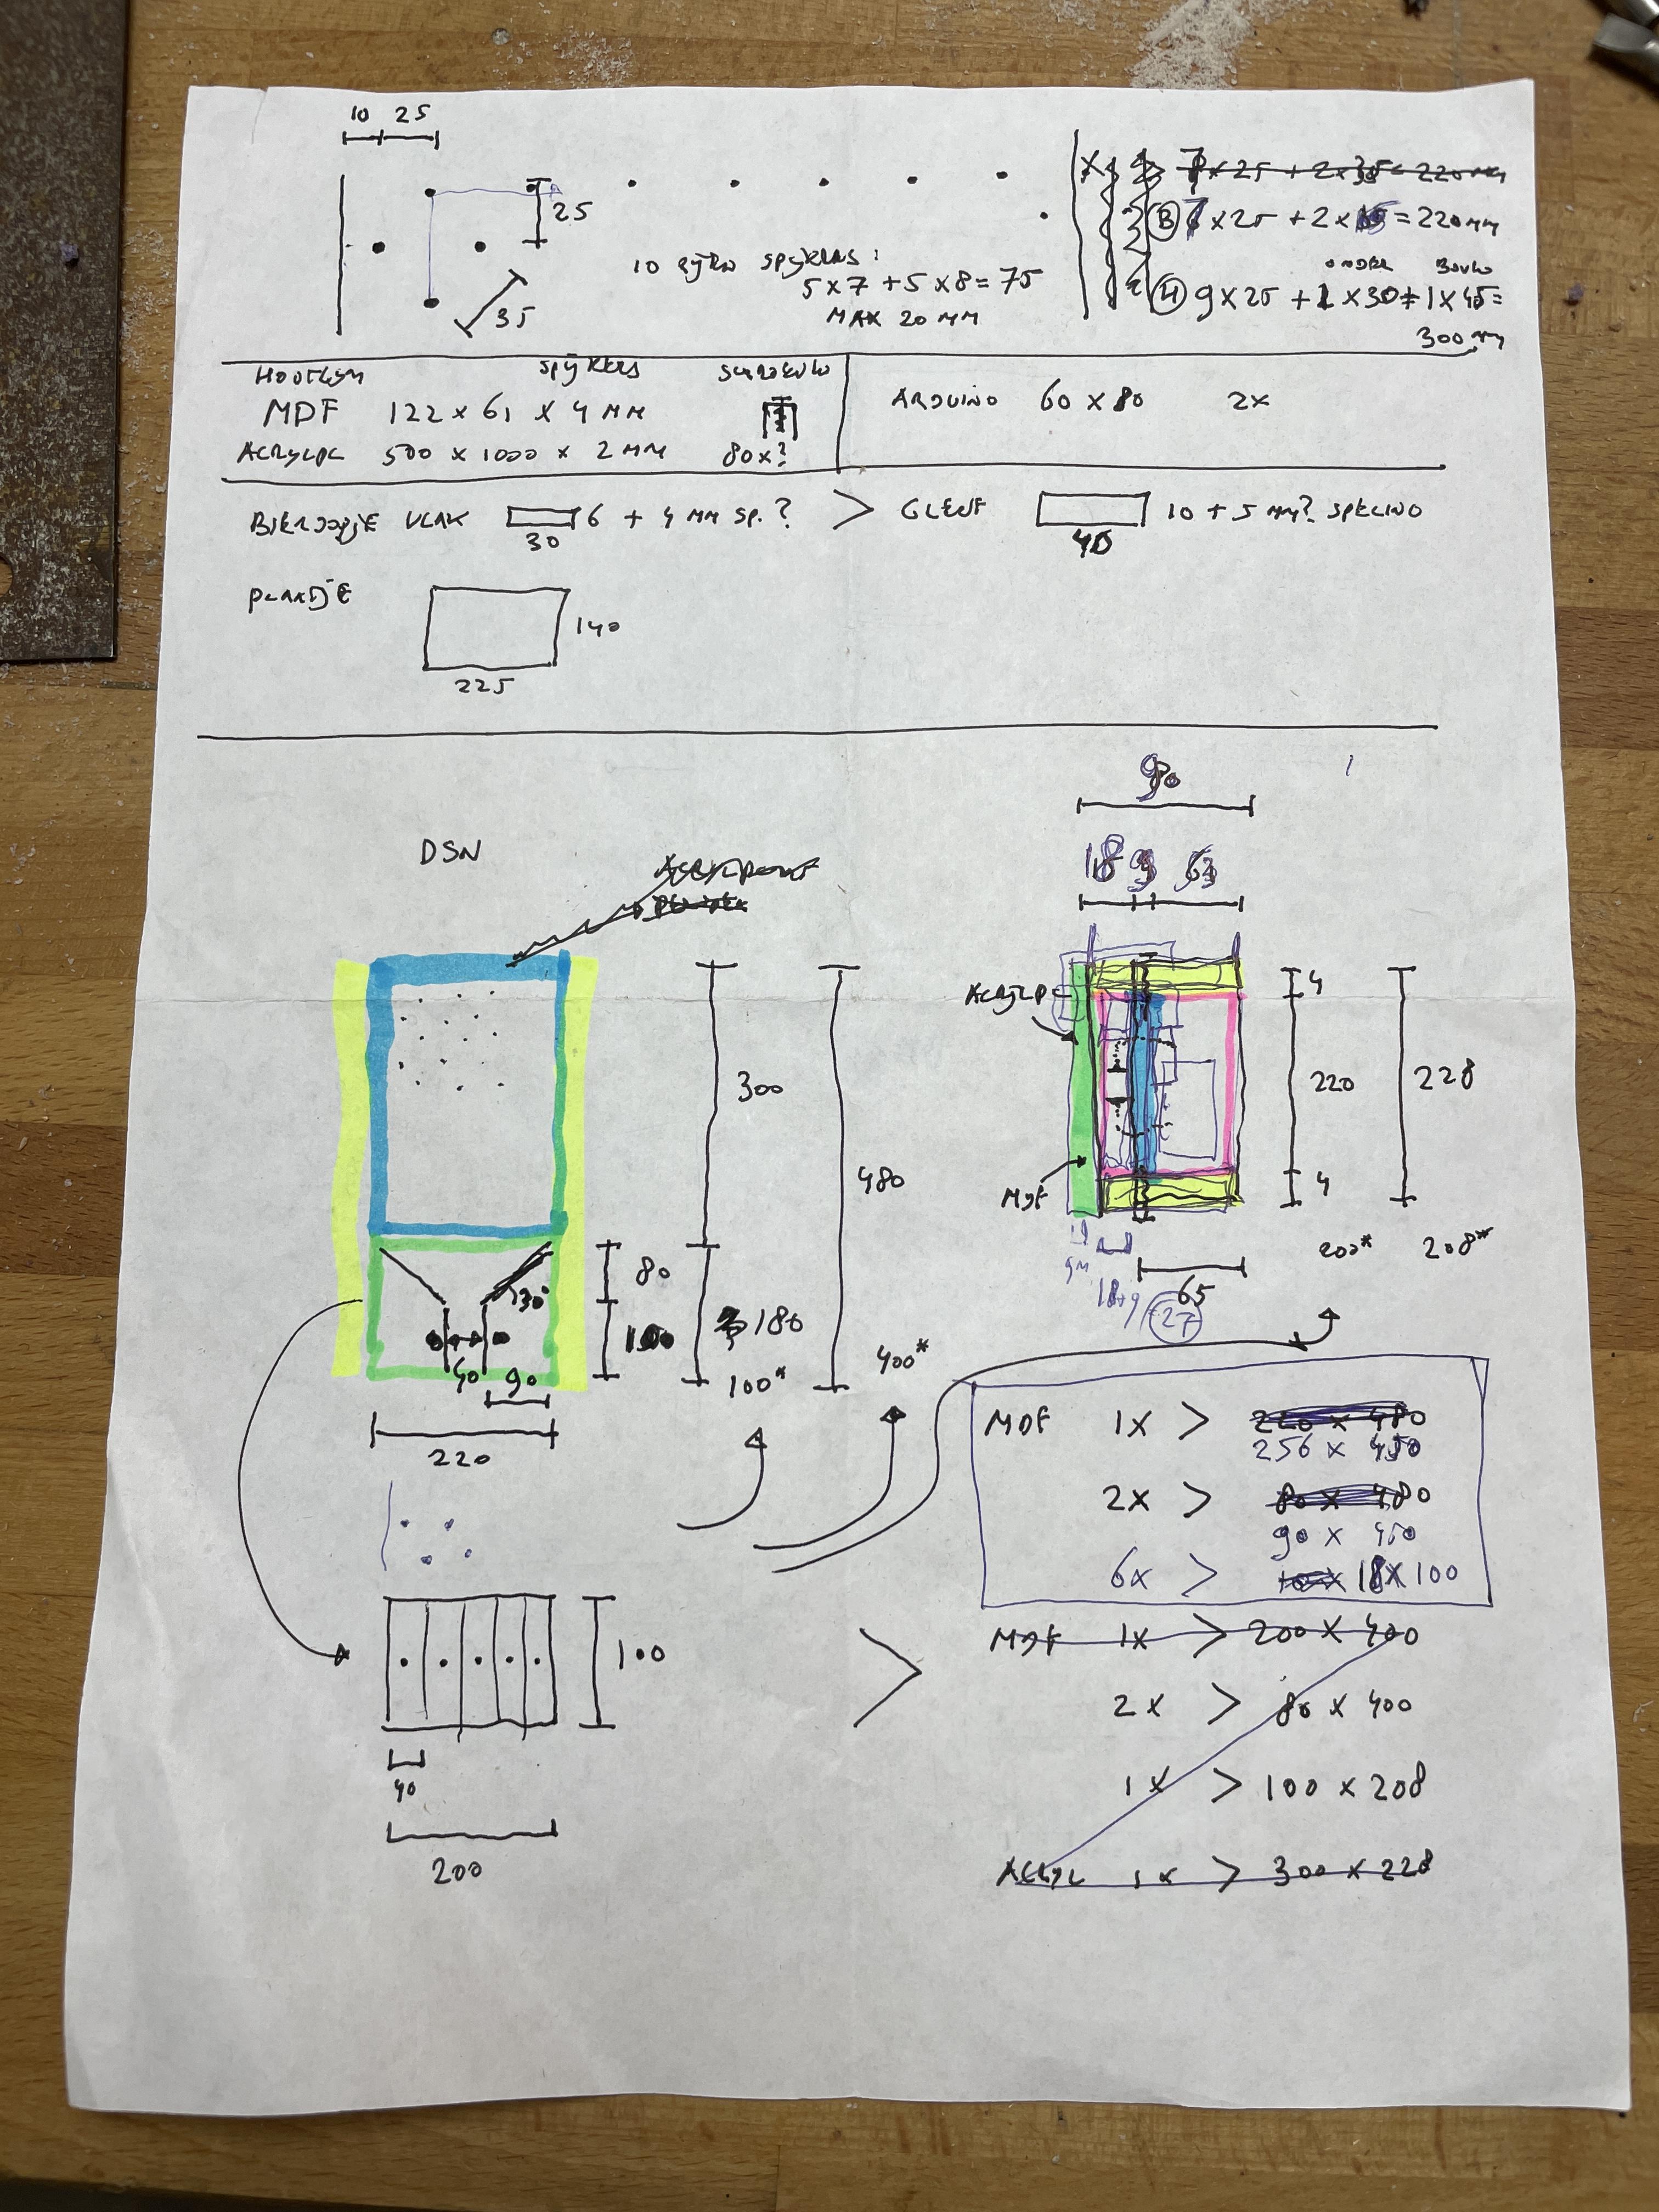 10 25
25
35
10 RIJEN SPIJKERS:
5 x 7 + 5 x 8 = 75
MAX 20 MM
x 25 + 2 x 35 = 220 MM
B x 25 + 2 x = 220 MM
ONDER BOVEN
H 9 x 25 + 1 x 30 + 1 x 45 =
300 MM
SPIJKERS
MDF 122 x 61 x 4 MM
500 x 1000 x 2 MM 80x?
ARDUINO 60 x 80 2x
BIERDOPJE VLAK 6 + 4 MM SP.? > GLEUF 10 + 5 MM?
30
40
PLANKJE
140
225
90
DSN
18 9 63
300
480
80
30°
100
180
40
90
100*
400*
220
4
220
228
4
MDF
18
200* 208*
65
27
MDF 1x > 220 x 480
256 x 450
2x > 80 x 480
90 x 450
6x > 18 x 100
MDF 1x > 200 x 400
2x > 80 x 400
1x > 100 x 208
ACRYL 1x > 300 x 228
100
40
200